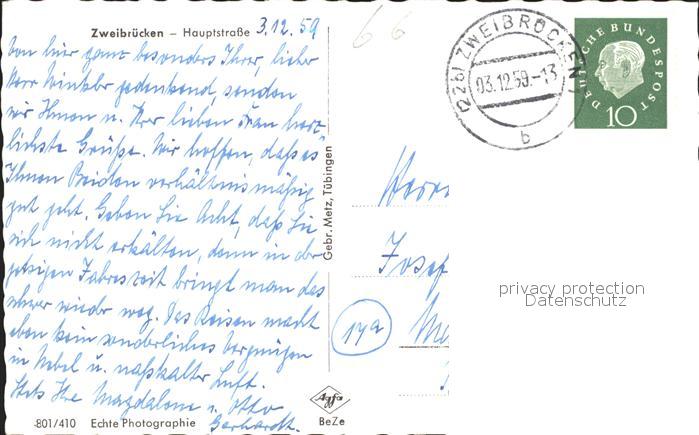 Zweibrücken – Hauptstraße 3.12.59
Von hier ganz besonders Ihrer, lieber
Herr Winkler gedenkend, senden
wir Ihnen u. Ihrer lieben Frau herz-
lichste Grüße. Wir hoffen, daß es
Ihnen Beiden verhältnismäßig
gut geht. Geben Sie Acht, daß Sie
sich nicht erkälten, denn in der
jetzigen Jahreszeit bringt man das
schwer wieder weg. Das Reisen macht
eben kein sonderliches Vergnügen
in Nebel u. naßkalter Luft.
Stets Ihre Magdalone u. Otto
Gerhardt.
801/410 Echte Photographie
Gebr. Metz, Tübingen
Agfa
BeZe
66
(22b) ZWEIBRÜCKEN
03.12.59.-13
b
DEUTSCHE BUNDESPOST
10
Herrn
Josef
17a
privacy protection
Datenschutz